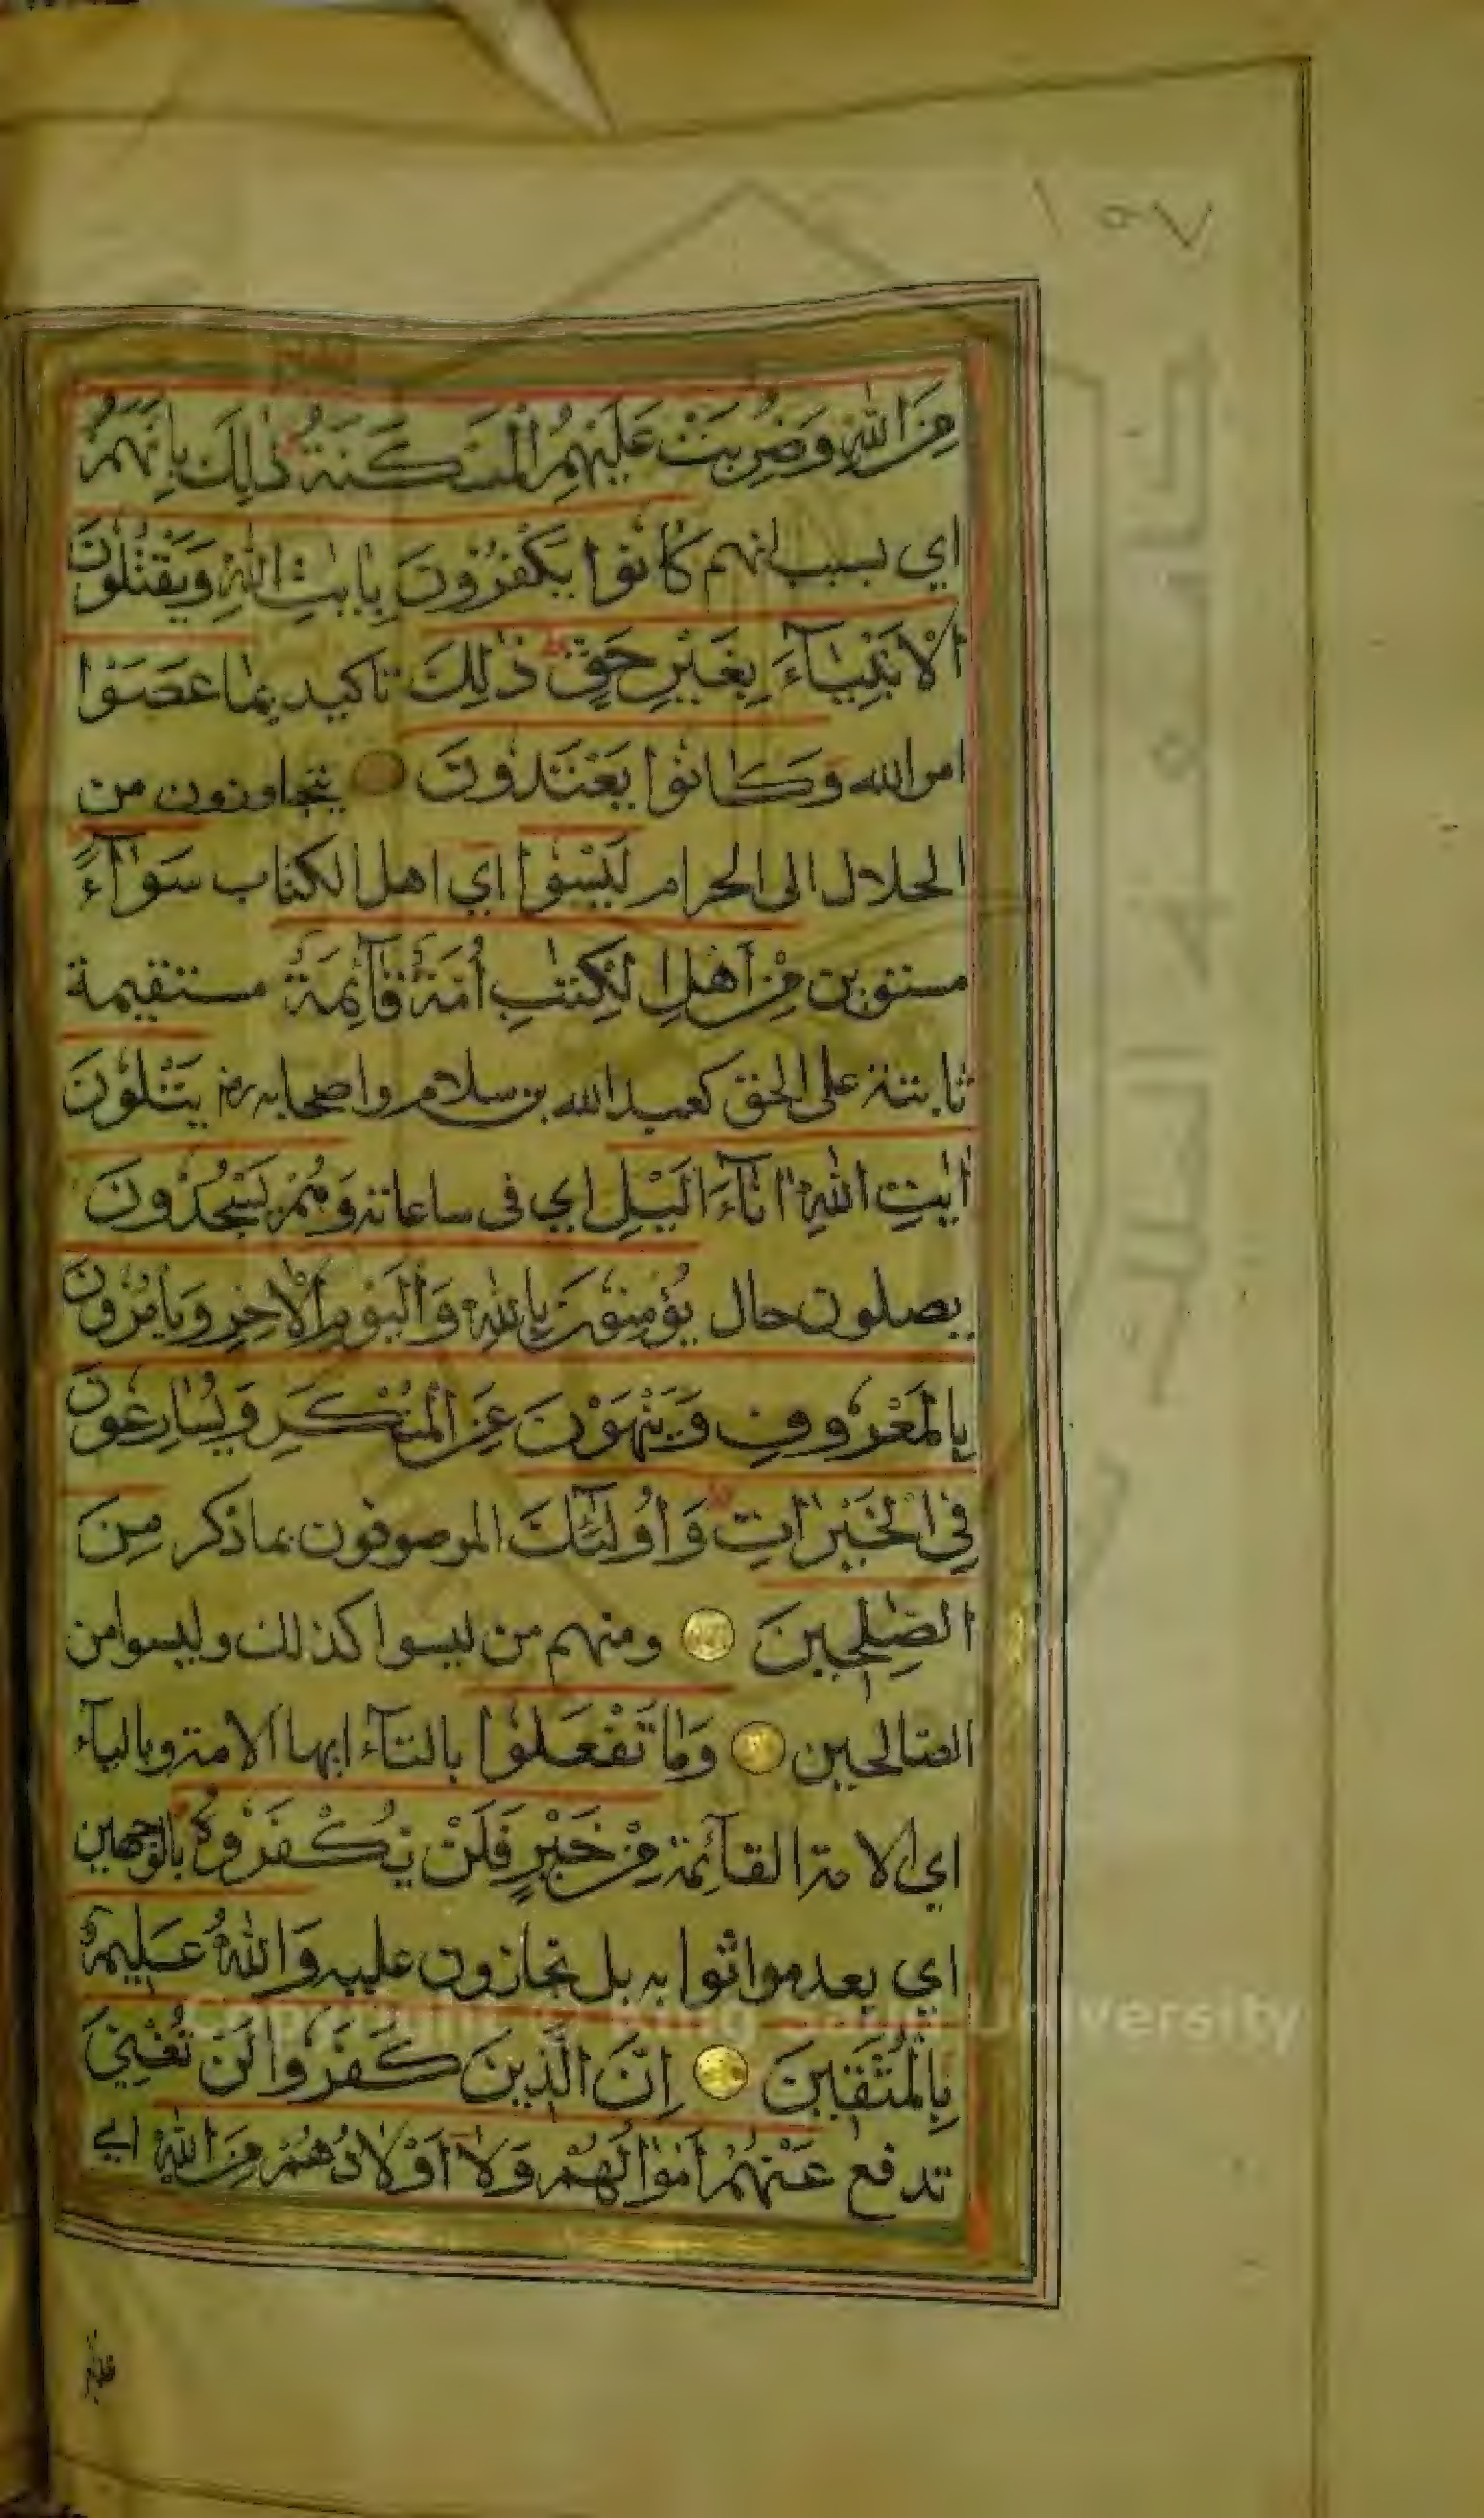 ١٥٧
مِنَ اللّٰهِ وَضُرِبَتْ عَلَيْهِمُ الْمَسْكَنَةُ ذٰلِكَ بِاَنَّهُمْ
اي بسبب انهم كَانُوا يَكْفُرُونَ بِاٰيٰتِ اللّٰهِ وَيَقْتُلُونَ
الْاَنْبِيَآءَ بِغَيْرِ حَقٍّ ذٰلِكَ تاكيد بِمَا عَصَوْا
امر الله وَكَانُوا يَعْتَدُونَ يتجاوزون من
الحلال الى الحرام لَيْسُوا اي اهل الكتاب سَوَآءً
مستوين مِنْ اَهْلِ الْكِتٰبِ اُمَّةٌ قَآئِمَةٌ مستقيمة
ثابتة على الحق كعبد الله بن سلام واصحابه رض يَتْلُونَ
اٰيٰتِ اللّٰهِ اٰنَآءَ الَّيْلِ اي في ساعاته وَهُمْ يَسْجُدُونَ
يصلون حال يُؤْمِنُونَ بِاللّٰهِ وَالْيَوْمِ الْاٰخِرِ وَيَاْمُرُونَ
بِالْمَعْرُوفِ وَيَنْهَوْنَ عَنِ الْمُنْكَرِ وَيُسَارِعُونَ
فِي الْخَيْرَاتِ وَاُولٰٓئِكَ الموصوفون بما ذكر مِنَ
الصّٰلِحِينَ ومنهم من ليسوا كذلك وليسوا من
الصالحين وَمَا تَفْعَلُوا بالتآء ايها الامة وباليآء
اي الامة القآئمة مِنْ خَيْرٍ فَلَنْ يُكْفَرُوهُ بالوجهين
اي يعدموا ثوابه بل يجازون عليه وَاللّٰهُ عَلِيمٌ
بِالْمُتَّقِينَ اِنَّ الَّذِينَ كَفَرُوا لَنْ تُغْنِيَ
تدفع عَنْهُمْ اَمْوَالُهُمْ وَلَآ اَوْلَادُهُمْ مِنَ اللّٰهِ اي
Copyright © King Saud University